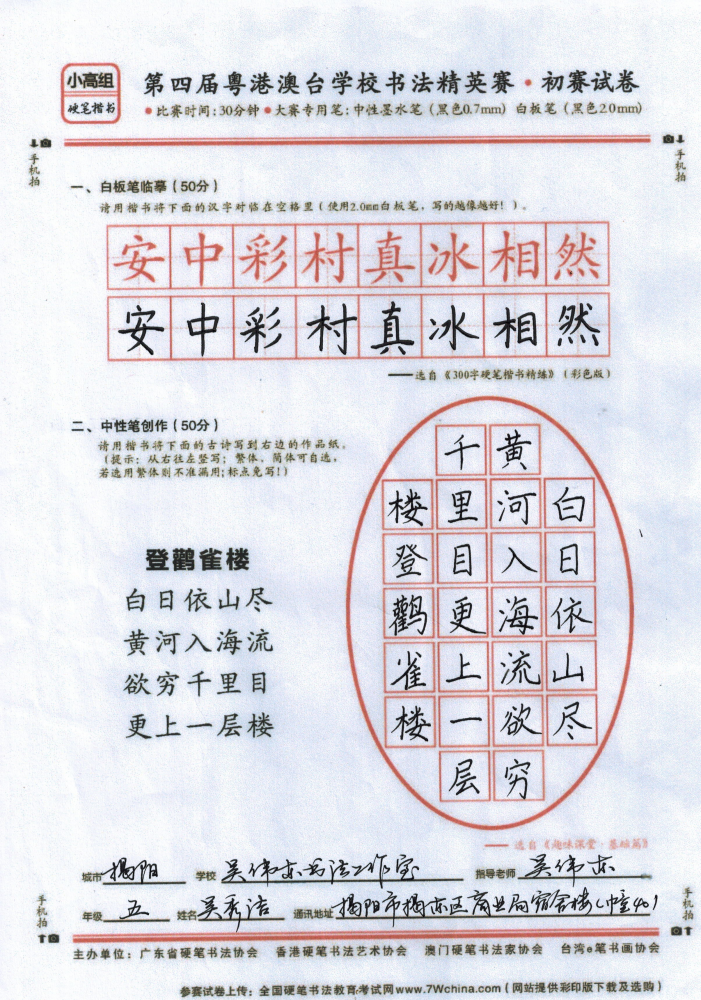 小高组
硬笔楷书
第四届粤港澳台学校书法精英赛·初赛试卷
●比赛时间:30分钟●大赛专用笔:中性墨水笔(黑色0.7mm) 白板笔(黑色2.0mm)
手机拍
手机拍
一、白板笔临摹(50分)
请用楷书将下面的汉字对临在空格里(使用2.0mm白板笔,写的越像越好!)。
安中彩村真冰相然
安中彩村真冰相然
——选自《300字硬笔楷书精练》(彩色版)
二、中性笔创作(50分)
请用楷书将下面的古诗写到右边的作品纸。
(提示:从右往左竖写;繁体、简体可自选,
若选用繁体则不准漏用;标点免写!)
登鹳雀楼
白日依山尽
黄河入海流
欲穷千里目
更上一层楼
白日依山尽
黄河入海流欲穷
千里目更上一层
楼登鹳雀楼
——选自《趣味课堂·基础篇》
城市 揭阳 学校 吴伟东书法工作室 指导老师 吴伟东
年级 五 姓名 吴秀洁 通讯地址 揭阳市揭东区商业局宿舍楼
手机拍
手机拍
主办单位:广东省硬笔书法协会 香港硬笔书法艺术协会 澳门硬笔书法家协会 台湾e笔书画协会
参赛试卷上传:全国硬笔书法教育考试网www.7Wchina.com(网站提供彩印版下载及选购)